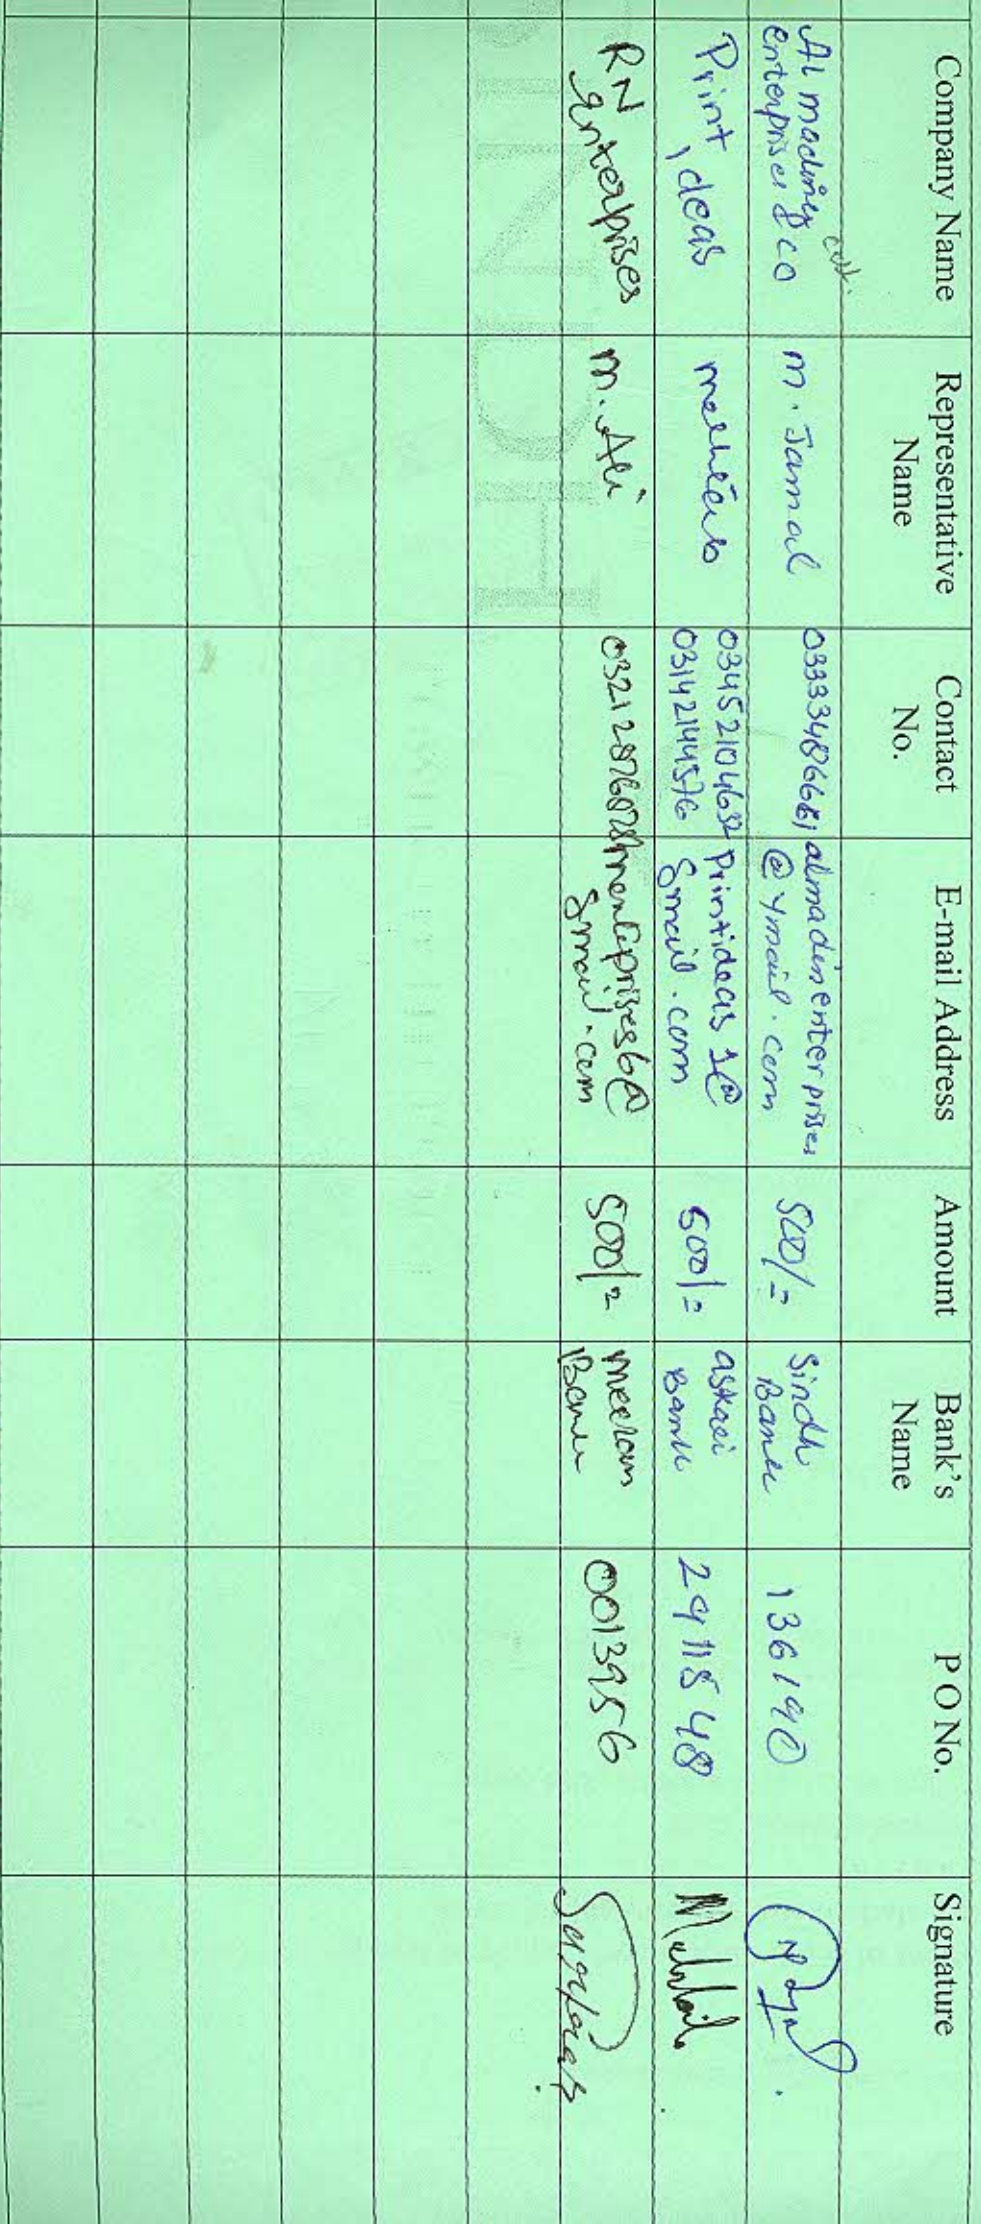 Company Name
Representative
Name
Contact
No.
E-mail Address
Amount
Bank's
Name
P O No.
Signature
Al madiny
enterprises & co
M. Jamal
almadinenterprises
@ ymail.com
500/=
Sindh
Bank
136190
Print ideas
03452104632
03142144576
Printideas 1@
Gmail.com
500/=
askari
Bank
29118548
RN
Enterprises
M. Ali
Gmail.com
500/=
meezan
Bank
0013956